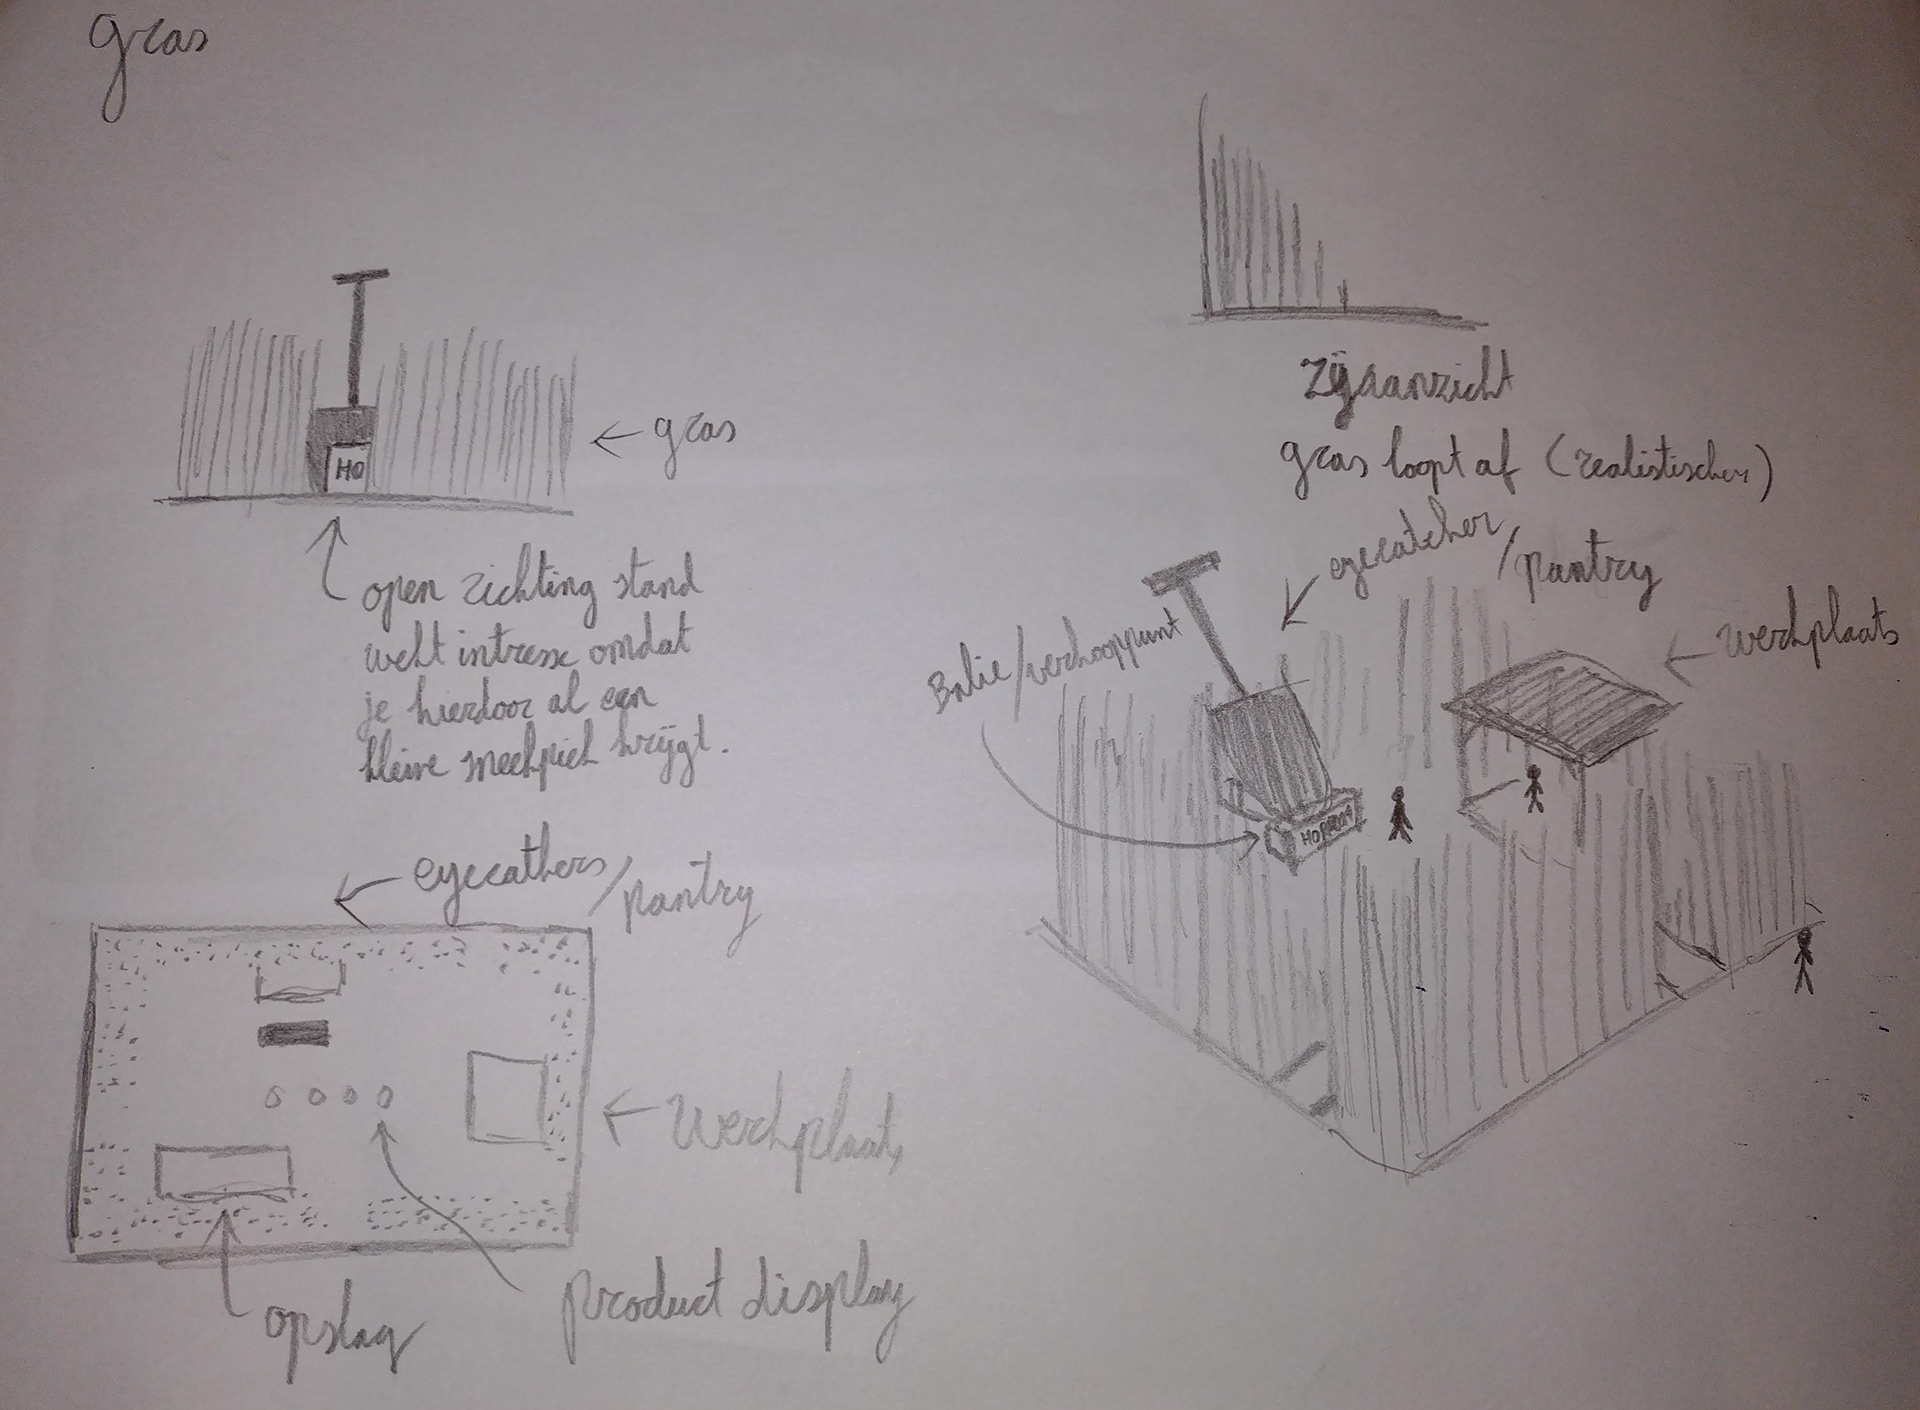 gras
Zijaanzicht
gras loopt af (realistischer)
← gras
HO
open zichting stand
wekt intresse omdat
je hierdoor al een
kleine meekpiek krijgt.
eyecatcher
/pantry
Balie/verkooppunt
werkplaats
eyecathers
/pantry
werkplaats
product display
opslag